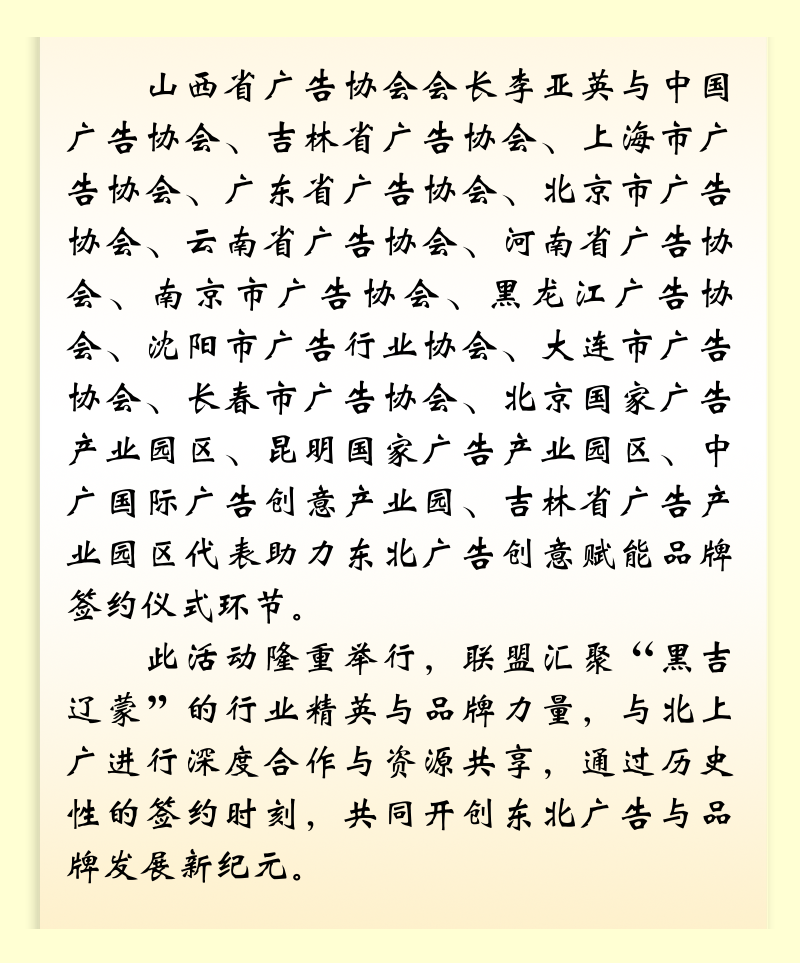 山西省广告协会会长李亚英与中国
广告协会、吉林省广告协会、上海市广
告协会、广东省广告协会、北京市广告
协会、云南省广告协会、河南省广告协
会、南京市广告协会、黑龙江广告协
会、沈阳市广告行业协会、大连市广告
协会、长春市广告协会、北京国家广告
产业园区、昆明国家广告产业园区、中
广国际广告创意产业园、吉林省广告产
业园区代表助力东北广告创意赋能品牌
签约仪式环节。
此活动隆重举行，联盟汇聚“黑吉
辽蒙”的行业精英与品牌力量，与北上
广进行深度合作与资源共享，通过历史
性的签约时刻，共同开创东北广告与品
牌发展新纪元。